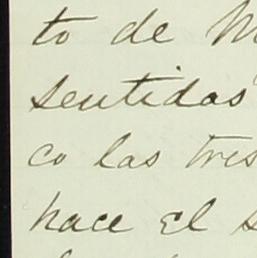 to de
sentidas
co las tres
hace el